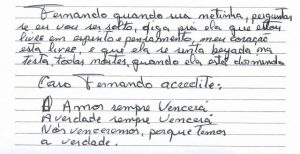 Fernando quando sua netinha, perguntar
se eu vou ser solto, diga pra ela que estou
livre em espirito e pensamento, meu coração
está livre, e que ela se sinta beijada na
testa, todas noites, quando ela está dormindo
Caro Fernando acredite:
O Amor sempre Vencerá
A verdade sempre Vencerá
Nós venceremos, porque temos
a verdade.